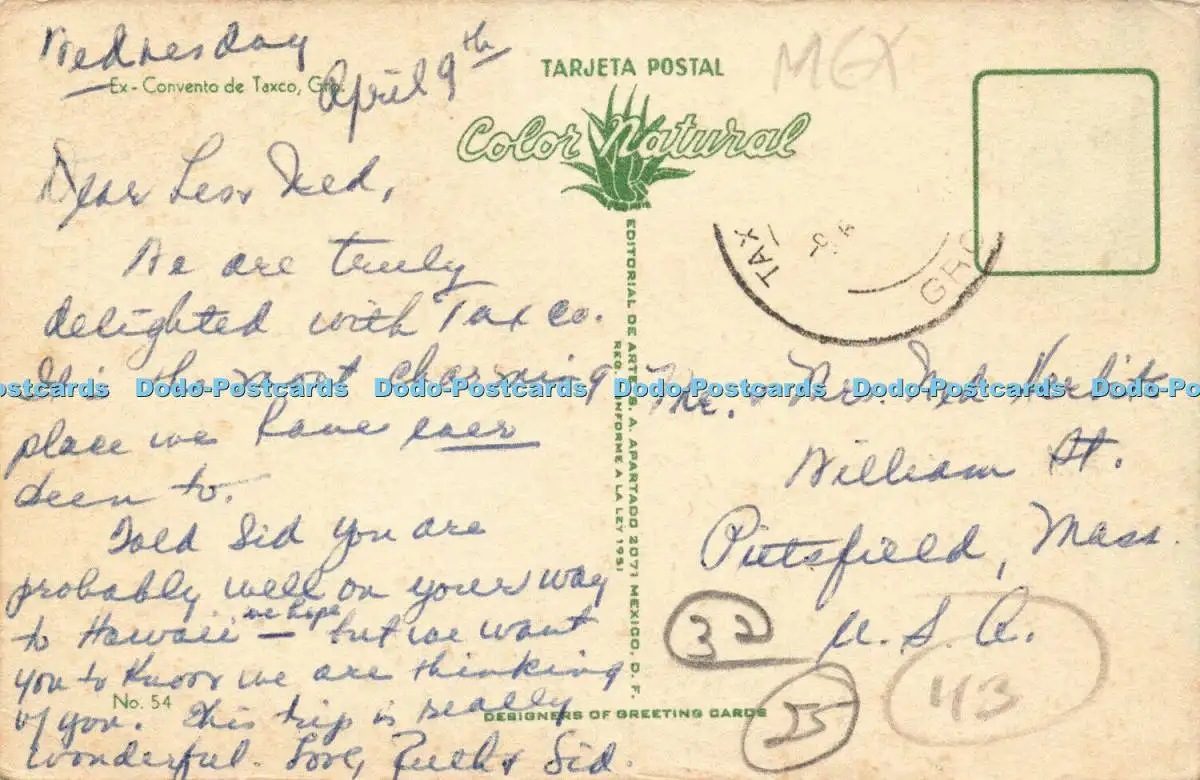 Wednesday
April 9th
Ex - Convento de Taxco, Gro.
Dear Les & Ned,
We are truly
delighted with Taxco.
It is the most charming
place we have ever
been to.
Told Sid you are
probably well on your way
to Hawaii we hope — but we want
you to know we are thinking
of you. This trip is really
wonderful. Love, Ruth & Sid.
No. 54
TARJETA POSTAL
Color Natural
EDITORIAL DE ARTE S. A. APARTADO 2071 MEXICO, D. F.
REG. INFORME A LA LEY 1951
DESIGNERS OF GREETING CARDS
MEX
TAX
GRO
Mr. & Mrs. Ned
William St.
Pittsfield, Mass.
U. S. A.
113
Dodo-Postcards Dodo-Postcards Dodo-Postcards Dodo-Postcards